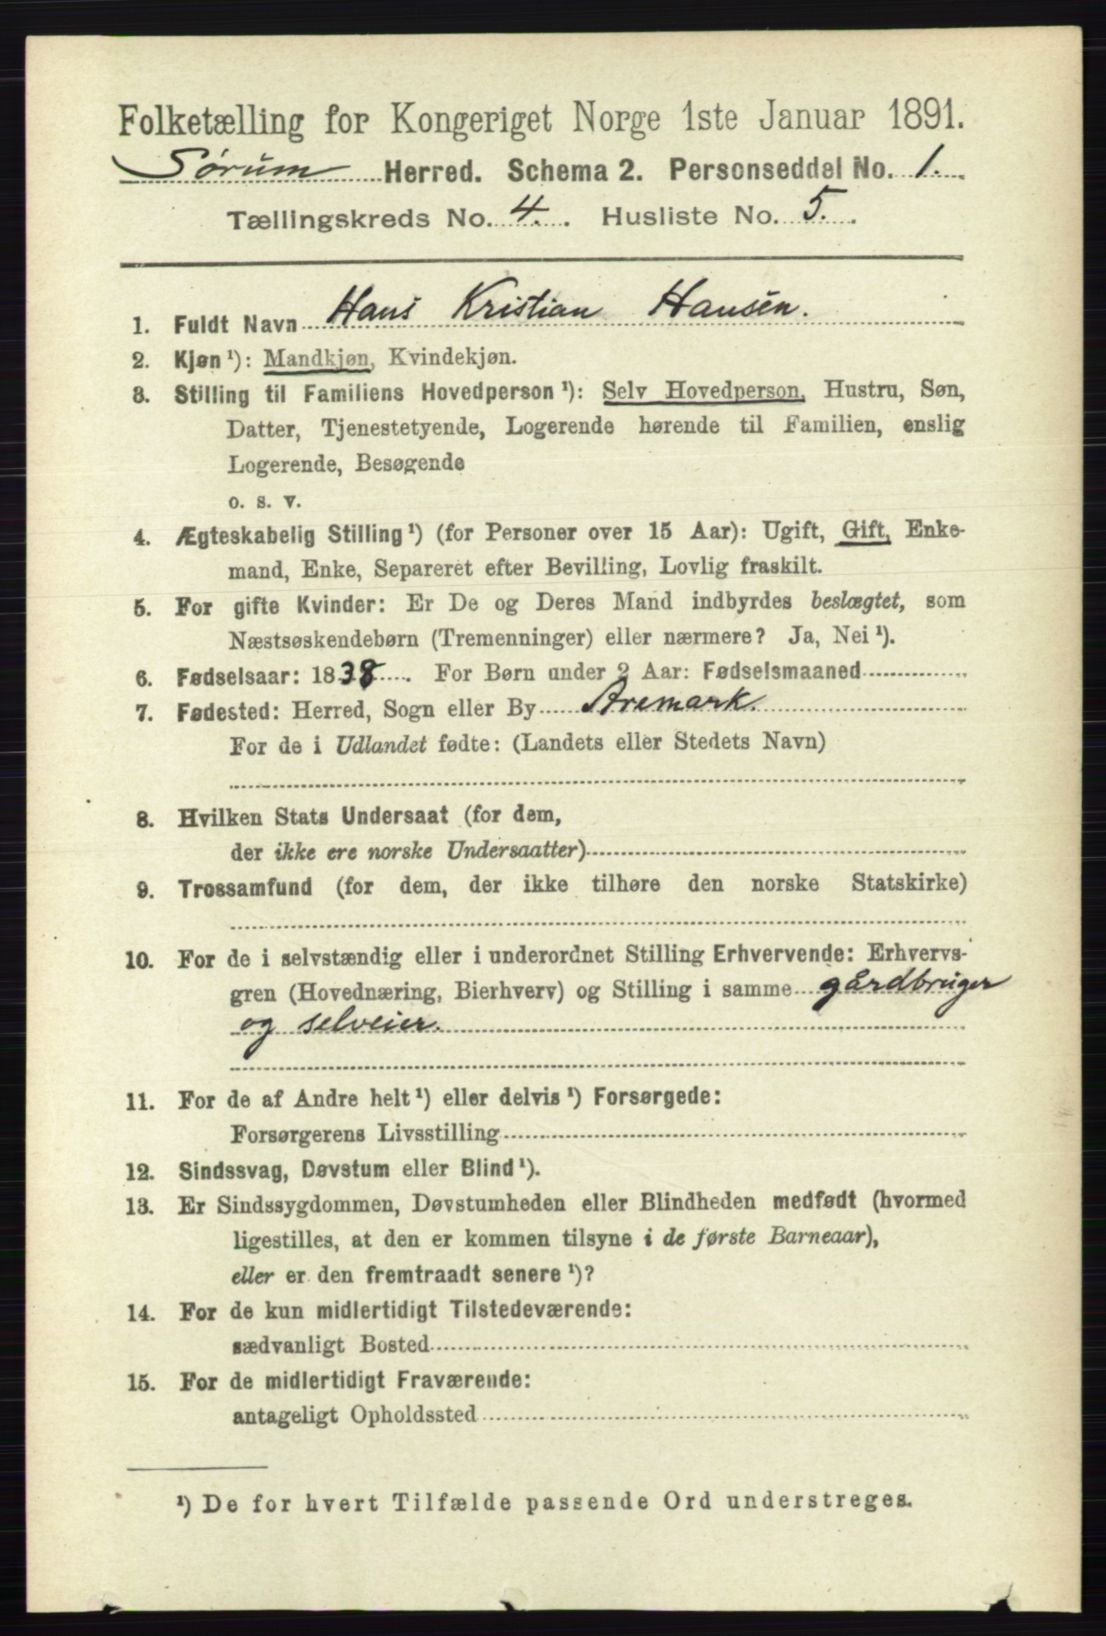 Folketælling for Kongeriget Norge 1ste Januar 1891.
Sørum Herred. Schema 2. Personseddel No. 1.
Tællingskreds No. 4. Husliste No. 5.
1. Fuldt Navn Hans Kristian Hansen.
2. Kjøn ¹): Mandkjøn, Kvindekjøn.
3. Stilling til Familiens Hovedperson ¹): Selv Hovedperson, Hustru, Søn,
Datter, Tjenestetyende, Logerende hørende til Familien, enslig
Logerende, Besøgende
o. s. v.
4. Ægteskabelig Stilling ¹) (for Personer over 15 Aar): Ugift, Gift, Enke-
mand, Enke, Separeret efter Bevilling, Lovlig fraskilt.
5. For gifte Kvinder: Er De og Deres Mand indbyrdes beslægtet, som
Næstsøskendebørn (Tremenninger) eller nærmere? Ja, Nei ¹).
6. Fødselsaar: 1838. For Børn under 2 Aar: Fødselsmaaned
7. Fødested: Herred, Sogn eller By Aremark.
For de i Udlandet fødte: (Landets eller Stedets Navn)
8. Hvilken Stats Undersaat (for dem,
der ikke ere norske Undersaatter)
9. Trossamfund (for dem, der ikke tilhøre den norske Statskirke)
10. For de i selvstændig eller i underordnet Stilling Erhvervende: Erhvervs-
gren (Hovednæring, Bierhverv) og Stilling i samme gårdbruger
og selveier.
11. For de af Andre helt ¹) eller delvis ¹) Forsørgede:
Forsørgerens Livsstilling
12. Sindssvag, Døvstum eller Blind ¹).
13. Er Sindssygdommen, Døvstumheden eller Blindheden medfødt (hvormed
ligestilles, at den er kommen tilsyne i de første Barneaar),
eller er den fremtraadt senere ¹)?
14. For de kun midlertidigt Tilstedeværende:
sædvanligt Bosted
15. For de midlertidigt Fraværende:
antageligt Opholdssted
¹) De for hvert Tilfælde passende Ord understreges.